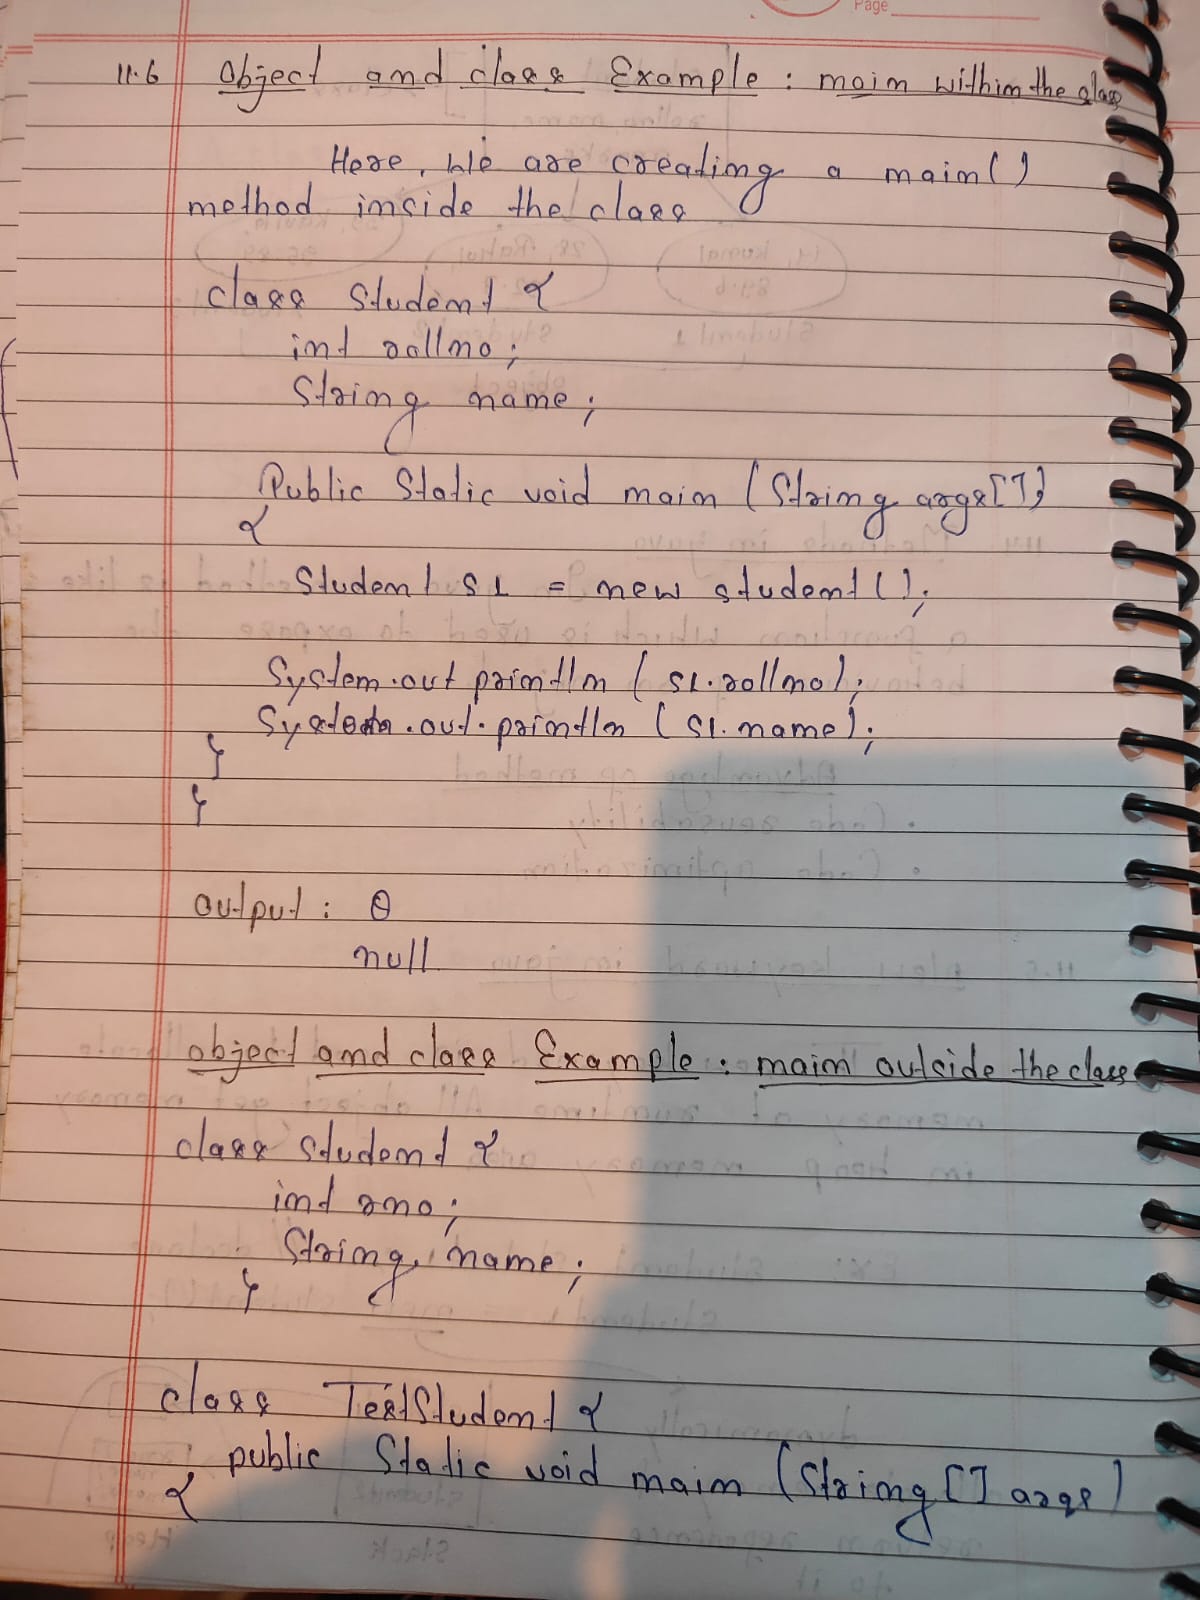 Page
11.6 Object and class Example : main within the class
Here, We are creating a main()
method inside the class
class Student {
int rollno ;
String name ;
Public Static void main (String args[])
{
Student s1 = new student();
System.out println ( s1.rollno);
System.out.println ( s1.name);
}
}
output : 0
null
object and class Example : main outside the class
class Student {
int rno ;
String name ;
}
class TestStudent {
public Static void main (String [] args)
{